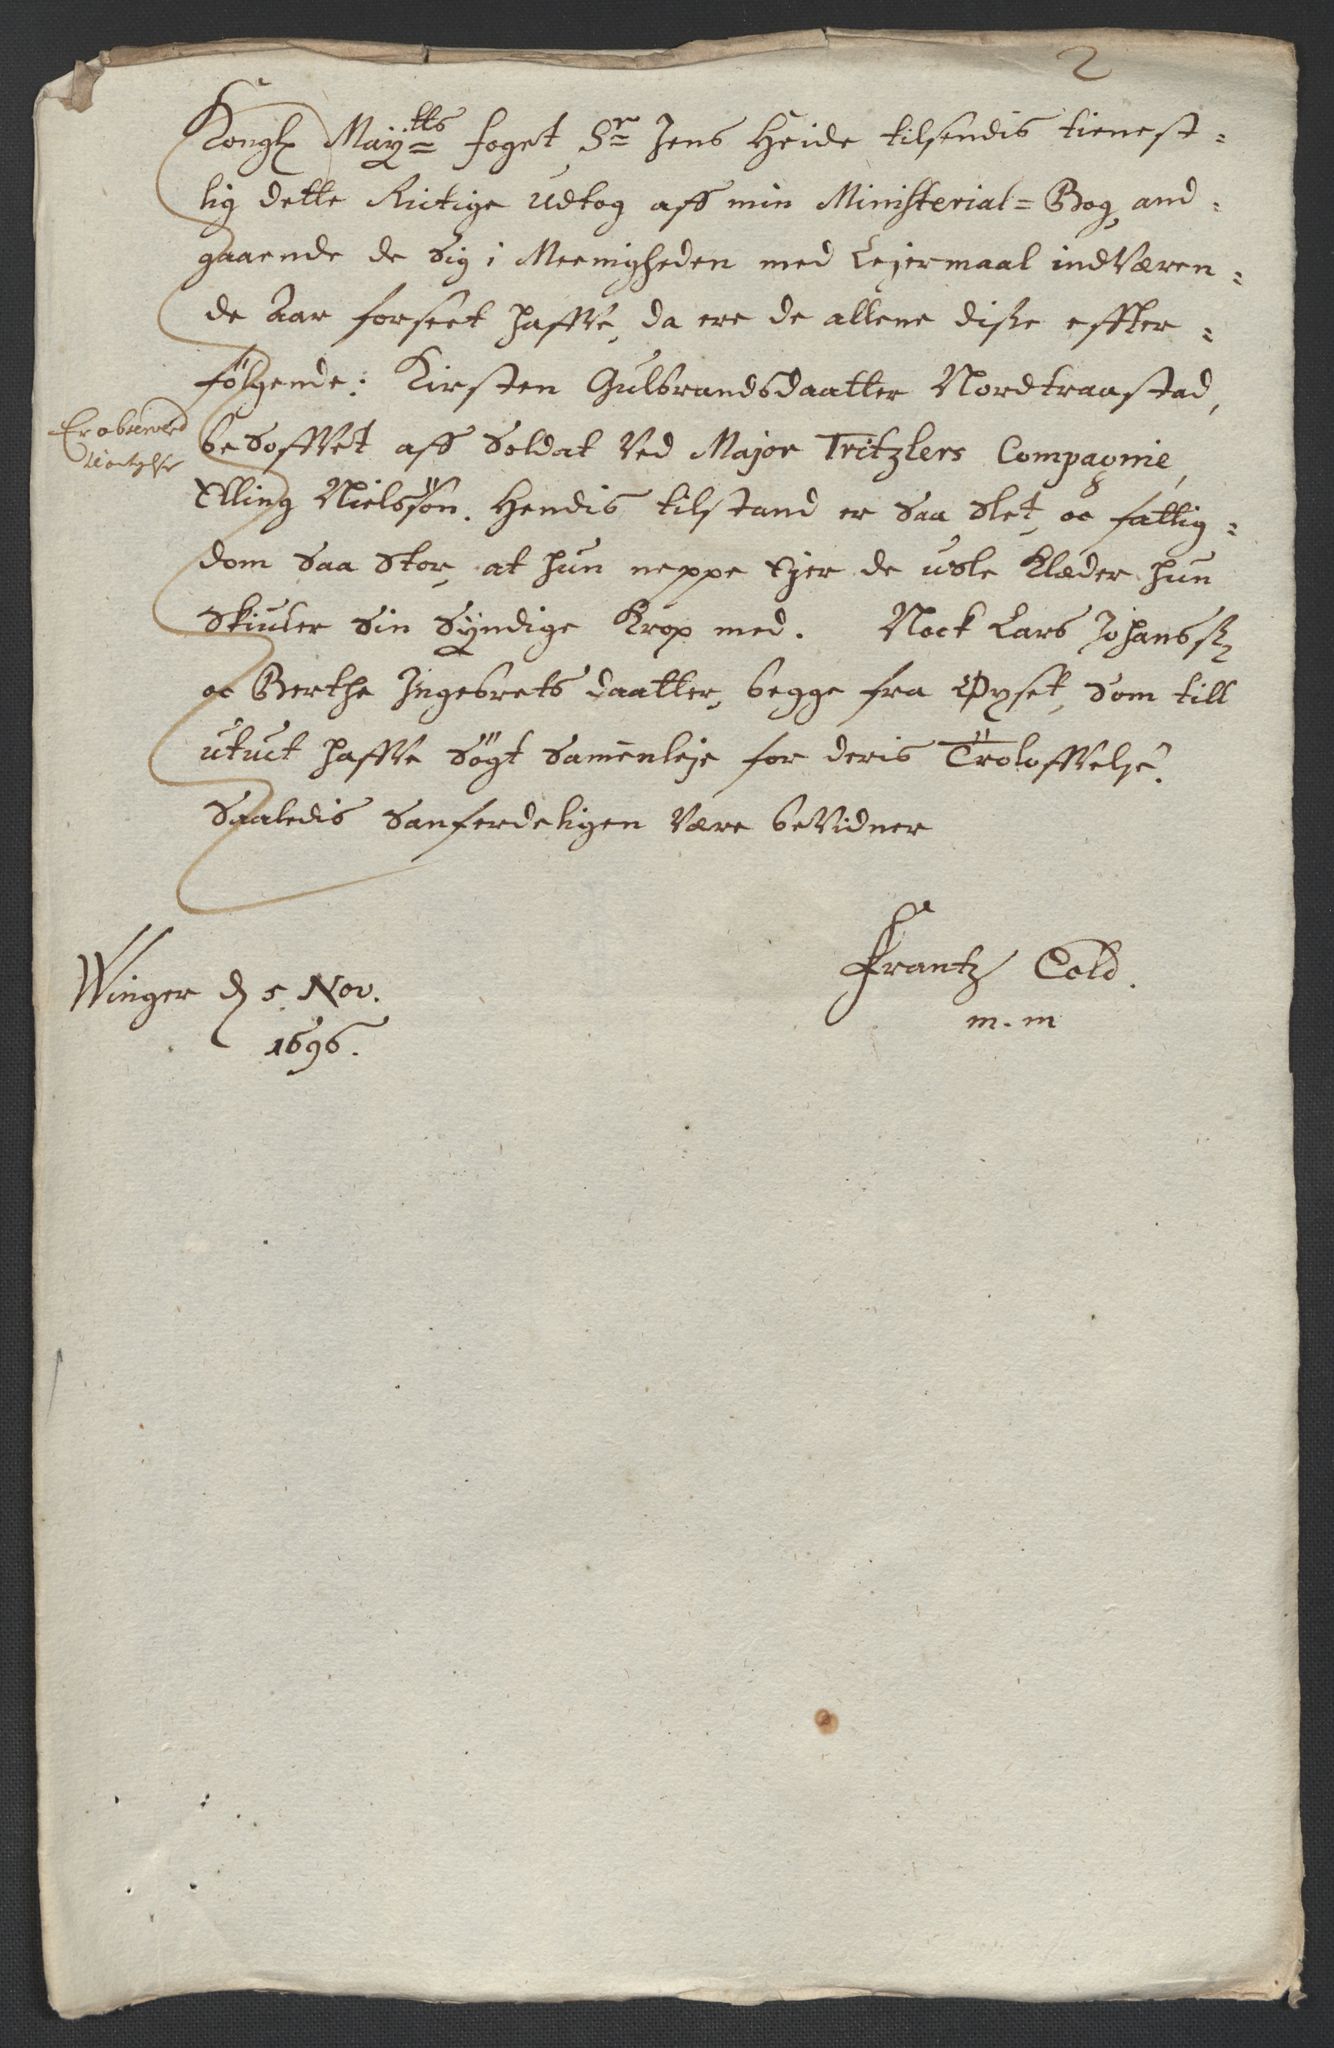 2
Kongl Mayᵗᵗˢ foget Sʳ Jens Heide tilsendis tienest=
lig dette Rictige Udtog aff min Ministerial=Bog and=
gaaende de Sig i Meenigheden med Lejermaal indværen=
de Aar forseet haffve, da ere de allene disse effter=
følgende: Kirsten Gulbrandsdaatter Nordtraastad,
besoffvet aff Soldat ved Major Tritzlers Compagnie,
Elling Nielssön. Hendis tilstand er saa slet, oc fattig=
dom saa stor, at hun neppe Ejer de usle Klæder hun
skiuler sin syndige Krop med. Nock Lars Johanss
oc Berthe Ingebrets daatter, begge fra Øyset, som till
utuct haffve søgt samenleje for deris Troloffvelse.
Saaledis sanferdeligen være bevidner
Er observerd
Frantz Cold.
m.m
Winger d 5 Nov.
1696.